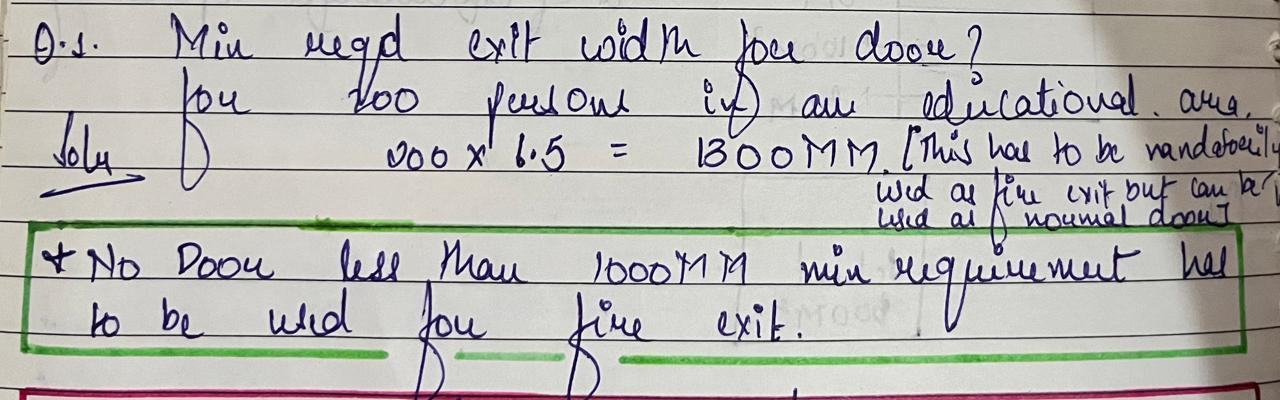 Q.1. Min reqd exit width for door?
for 200 persons if an educational area.
Soln 200 x 6.5 = 1300MM. [This has to be mandatorily
used as fire exit but can be
used as normal door]
* No Door less than 1000MM min requirement has
to be used for fire exit.